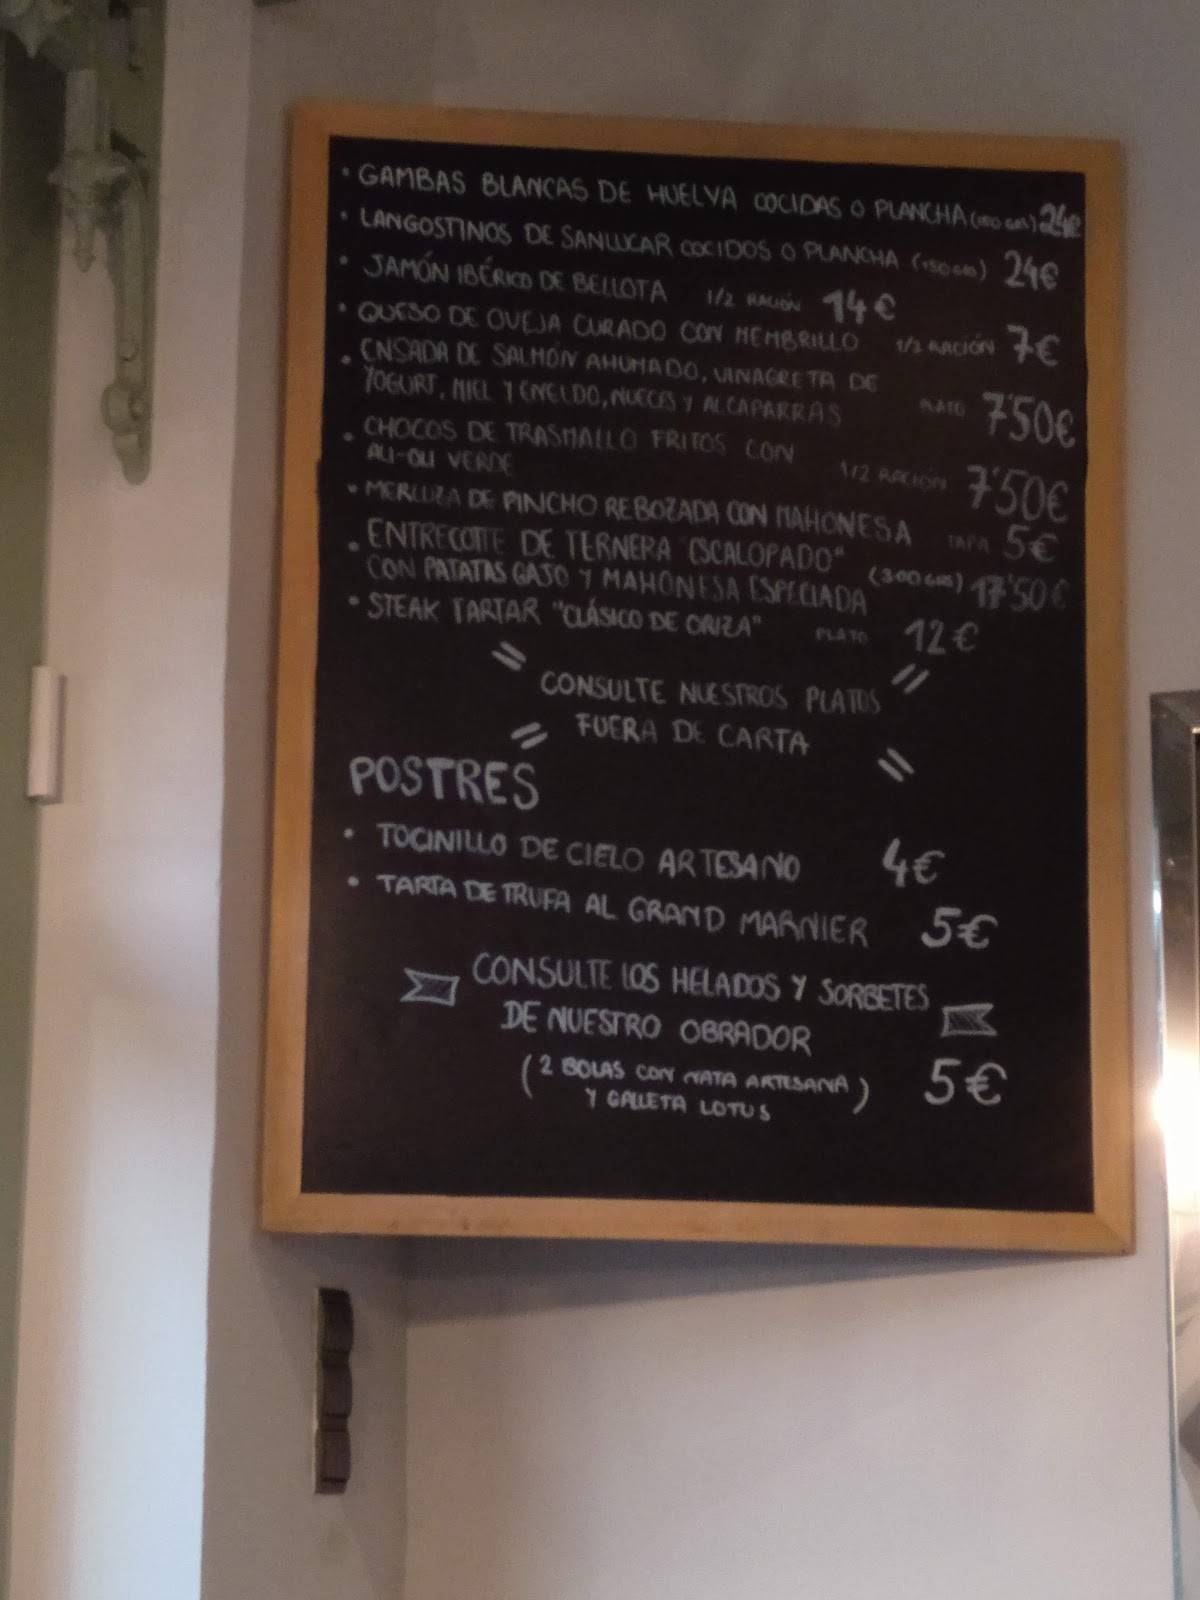 • GAMBAS BLANCAS DE HUELVA COCIDAS O PLANCHA (150 GRS) 24€
• LANGOSTINOS DE SANLUCAR COCIDOS O PLANCHA (150 GRS) 24€
• JAMÓN IBÉRICO DE BELLOTA 1/2 RACIÓN 14€
• QUESO DE OVEJA CURADO CON MEMBRILLO 1/2 RACIÓN 7€
• ENSADA DE SALMÓN AHUMADO, VINAGRETA DE
YOGURT, MIEL Y ENELDO, NUECES Y ALCAPARRAS PLATO 7'50€
• CHOCOS DE TRASMALLO FRITOS CON
ALI-OLI VERDE 1/2 RACIÓN 7'50€
• MERLUZA DE PINCHO REBOZADA CON MAHONESA TAPA 5€
• ENTRECOTTE DE TERNERA "ESCALOPADO"
CON PATATAS GAJO Y MAHONESA ESPECIADA (300 GRS) 17'50€
• STEAK TARTAR "CLÁSICO DE ORIZA" PLATO 12€
CONSULTE NUESTROS PLATOS
FUERA DE CARTA
POSTRES
• TOCINILLO DE CIELO ARTESANO 4€
• TARTA DE TRUFA AL GRAND MARNIER 5€
CONSULTE LOS HELADOS Y SORBETES
DE NUESTRO OBRADOR
(2 BOLAS CON NATA ARTESANA) 5€
Y GALLETA LOTUS